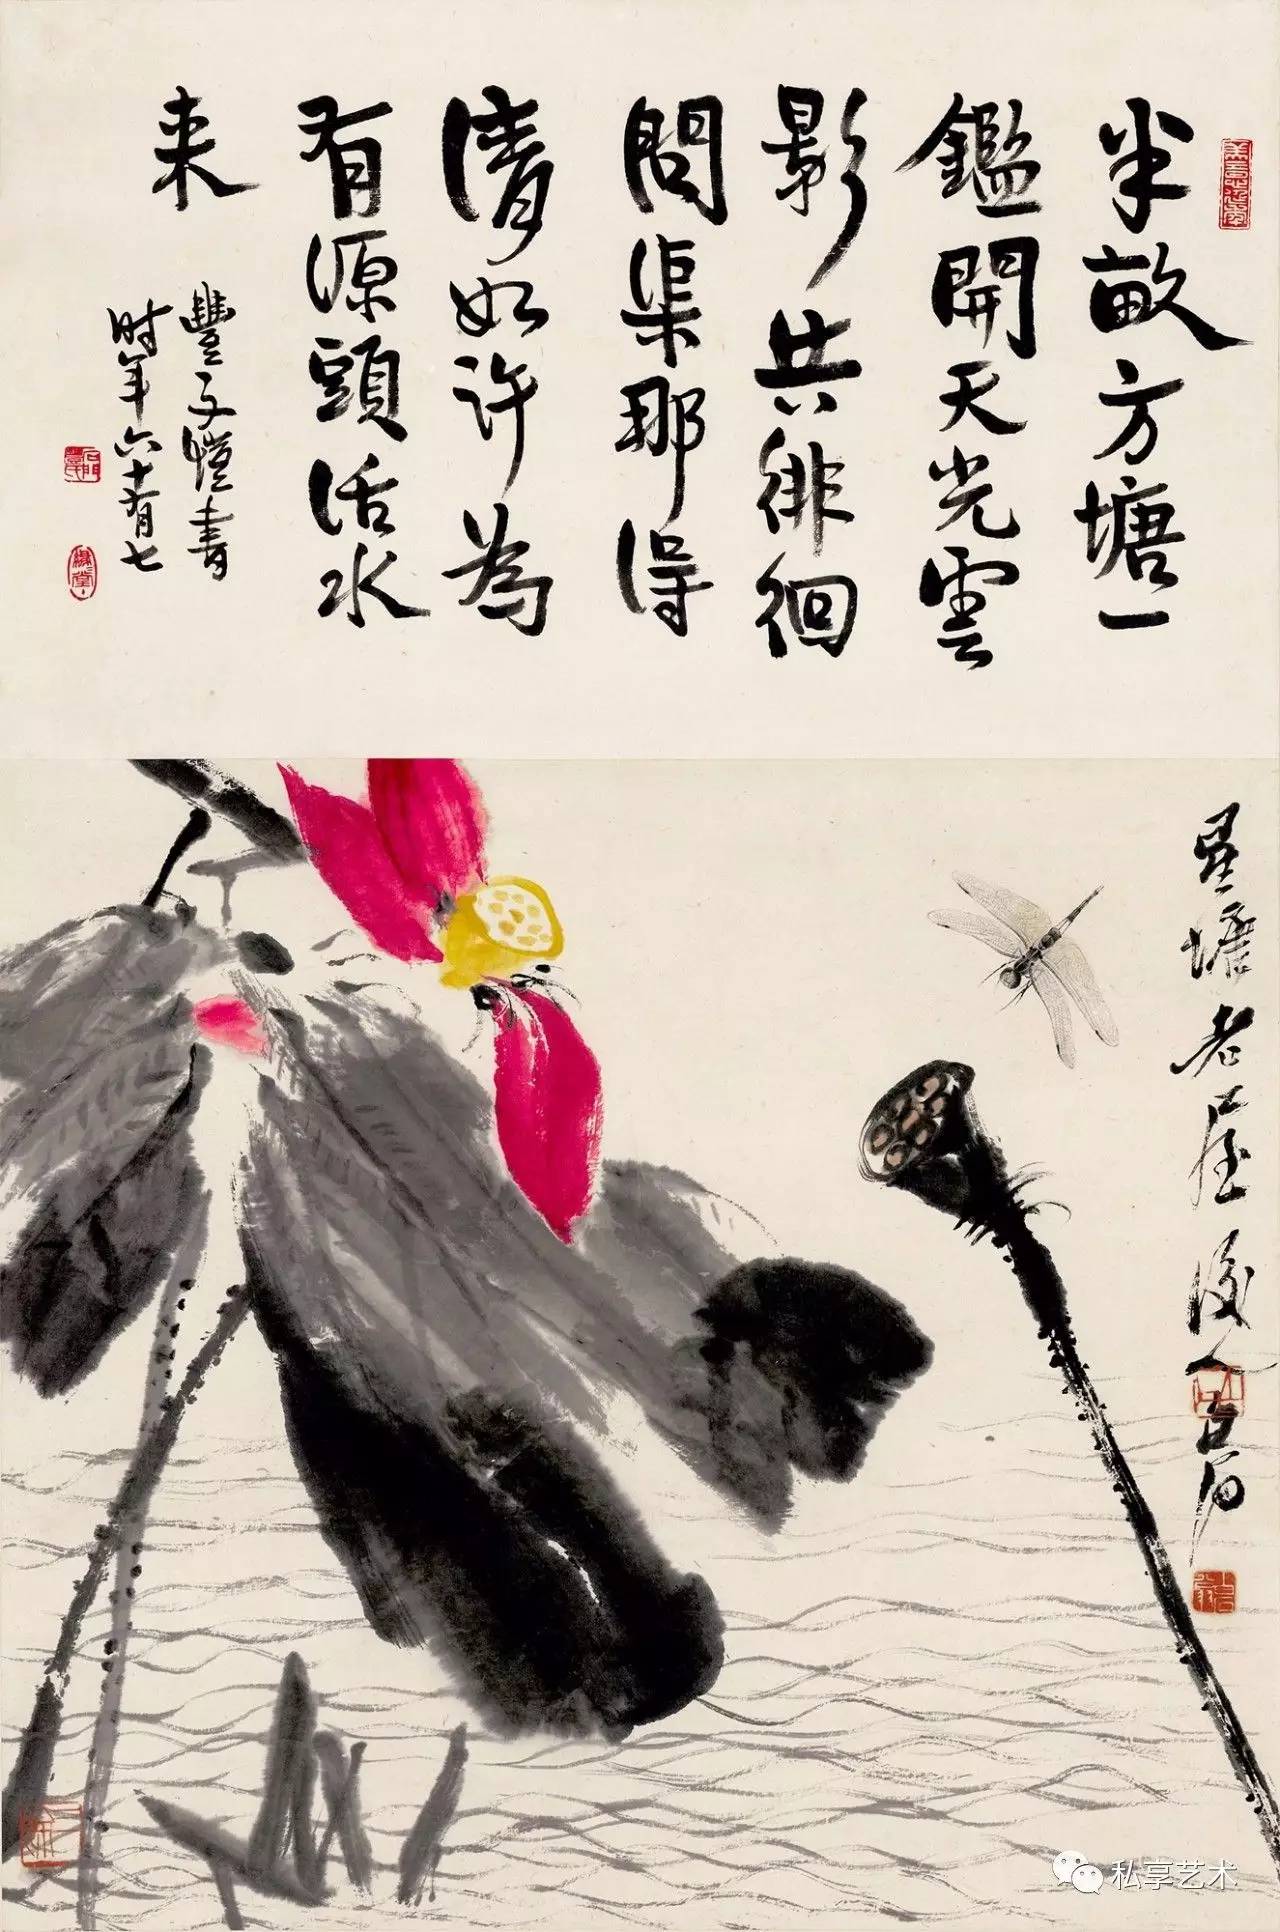 半畝方塘一
鑑開天光雲
影共徘徊
問渠那得
清如許為
有源頭活水
来
豐子愷書
时年六十有七
星塘老屋後人白石
私享艺术